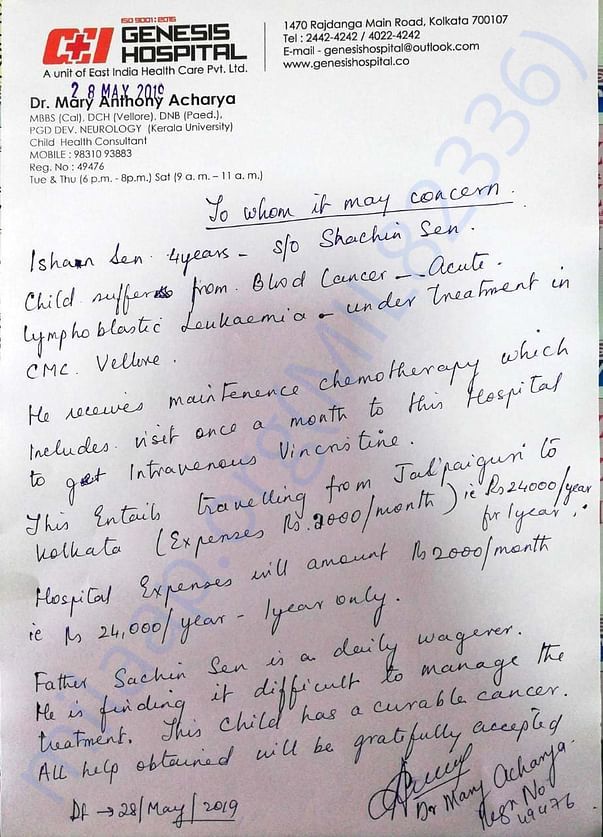 ISO 9001:2015
GENESIS
HOSPITAL
A unit of East India Health Care Pvt. Ltd.
1470 Rajdanga Main Road, Kolkata 700107
Tel : 2442-4242 / 4022-4242
E-mail - genesishospital@outlook.com
www.genesishospital.co
28 MAY 2019
Dr. Mary Anthony Acharya
MBBS (Cal), DCH (Vellore), DNB (Paed.),
PGD DEV. NEUROLOGY (Kerala University)
Child Health Consultant
MOBILE : 98310 93883
Reg. No : 49476
Tue & Thu (6 p.m. - 8p.m.) Sat (9 a. m. – 11 a. m.)
To whom it may concern.
Ishan Sen 4years - S/o Shachin Sen.
Child suffers from Blood Cancer - Acute.
Lymphoblastic Leukaemia - under treatment in
CMC. Vellore.
He receives maintenence chemotherapy which
Includes visit once a month to this Hospital
to get Intravenous Vincristine.
This Entails travelling from Jalpaiguri to
Kolkata (Expenses Rs. 2000/month) ie Rs 24000/year
for 1 year.
Hospital Expenses will amount Rs 2000/month
ie Rs 24,000/year - 1year only.
Father Sachin Sen is a daily wagerer.
He is finding it difficult to manage the
treatment. This child has a curable cancer.
All help obtained will be gratefully accepted
Dt → 28/May/2019
Dr Mary Acharya.
Regn No
49476
milaap.org(MIL82336)